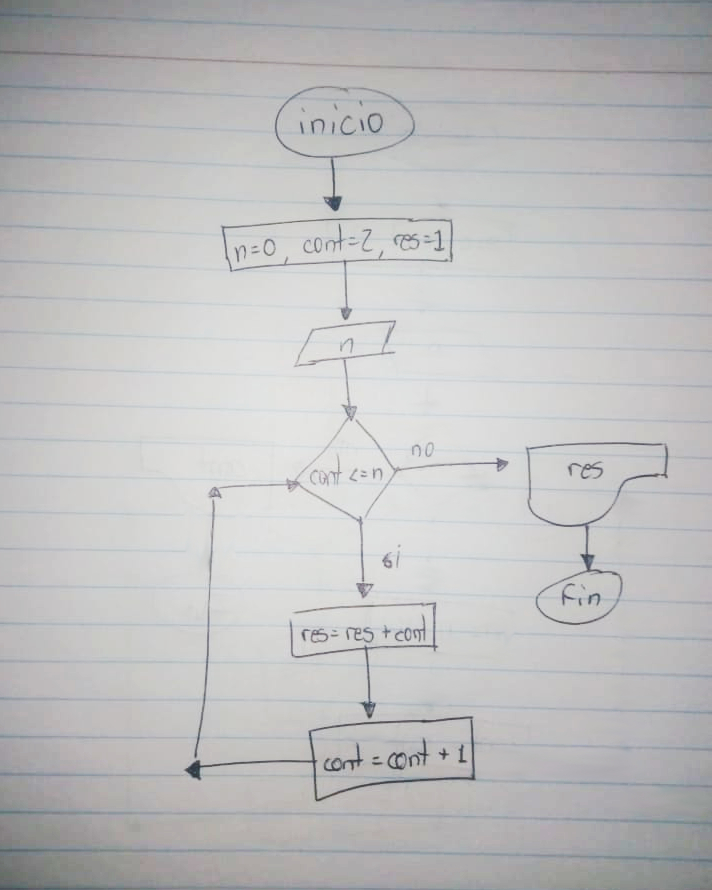 inicio
n=0, cont=2, res=1
n
cont <= n
no
res
si
fin
res=res+cont
cont = cont + 1